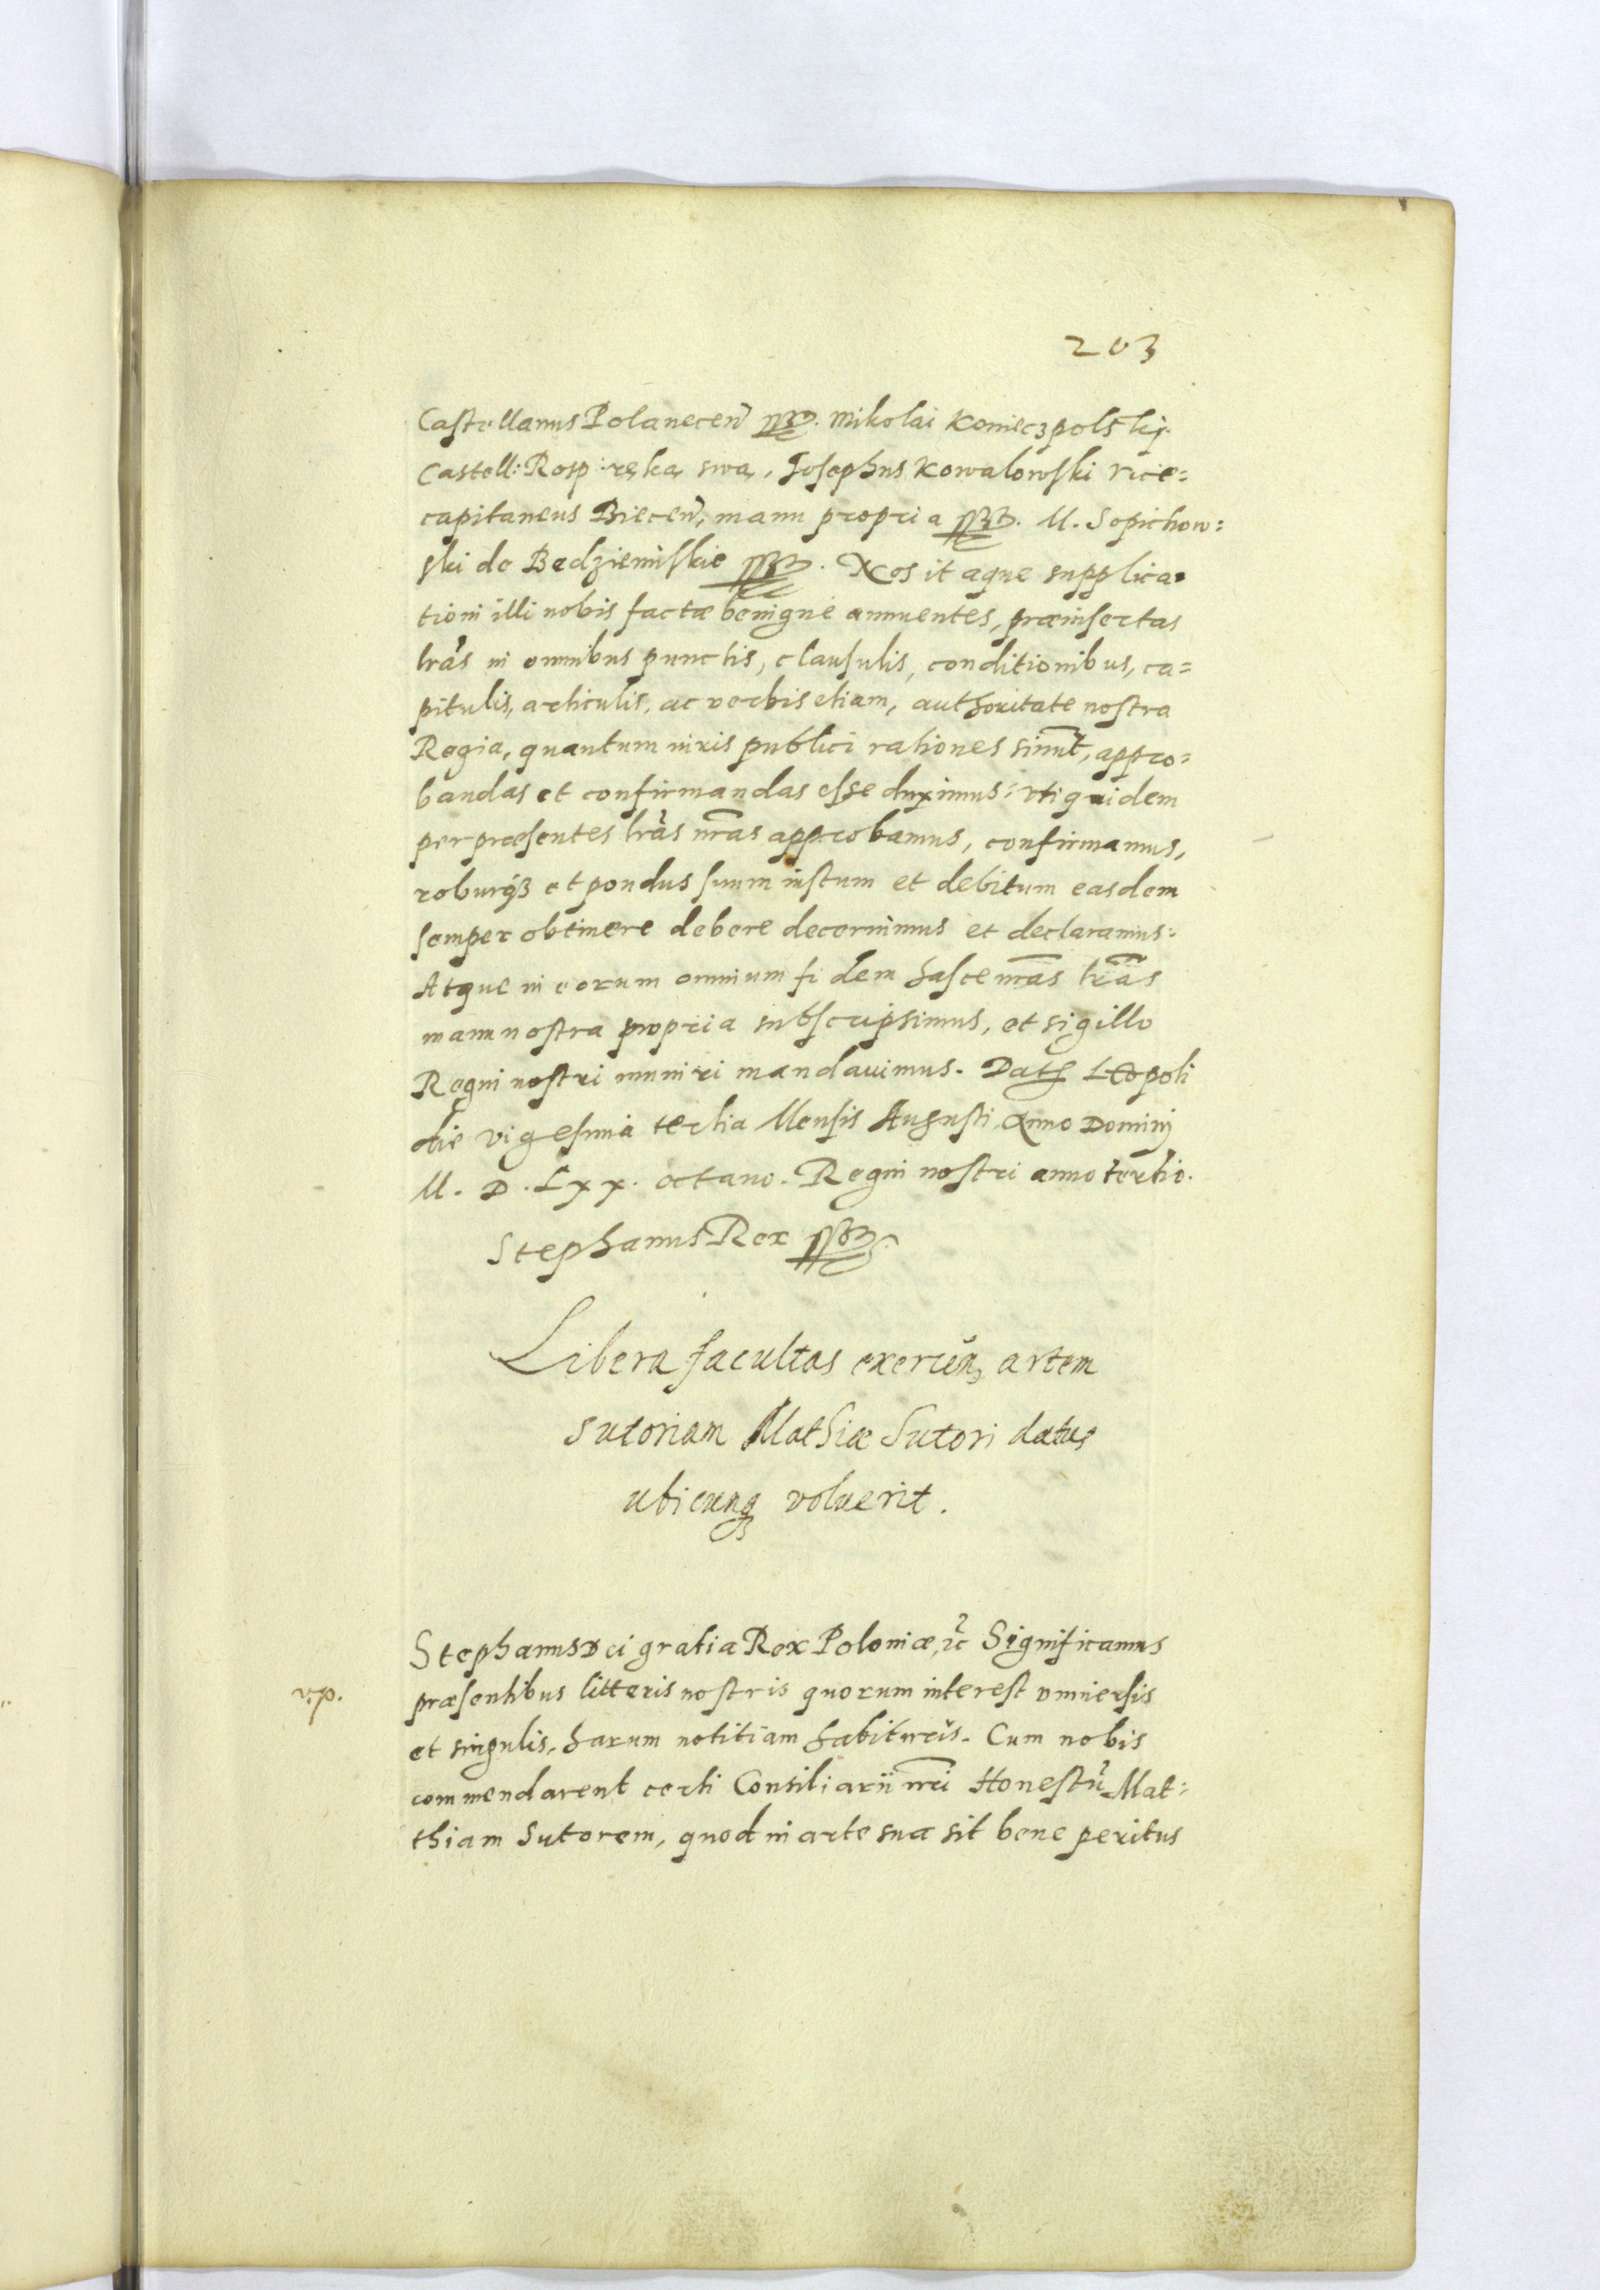 203
Castellanus Polanecen̄ sszp. Mikolai Konieczpolskj.
Castell: Rosp: ręką swą, Josephus Kowalowski Vice=
capitaneus Biecen̄, manu propria sszp. M. Sopichow=
ski de Bedziemiskie sszp. Nos itaque supplica=
tioni illi nobis factæ benigne annuentes, præinsertas
lrās in omnibus punctis, clausulis, conditionibus, ca=
pitulis, articulis, ac verbis etiam, authoritate nostra
Regia, quantum iuris publici rationes sinūt, appro=
bandas et confirmandas esse duximus: Vti quidem
per præsentes lrās nr̄as approbamus, confirmamus,
roburq́ʒ et pondus suum iustum et debitum easdem
semper obtinere debere decernimus et declaramus:
Atque in eorum omnium fidem hasce nr̄as lr̄as
manu nostra propria subscripsimus, et sigillo
Regni nostri muniri mandauimus. Dat Leopoli
die vigesima tertia Mensis Augusti Anno Dominj
M. D. Lxx. octauo. Regni nostri anno tertio.
Stephanus Rex sszp.
Libera facultas exercen̄, artem
sutoriam Mathiæ Sutori datus
ubicunqʒ voluerit.
Stephanus Dei gratia Rex Poloniæ, ꝛc̄ Significamus
v.p.
præsentibus litteris nostris quorum interest vniuersis
et singulis, harum notitiam habituris. Cum nobis
commendarent certi Consiliarii nr̄i Honestū Mat=
thiam Sutorem, quod in arte sua sit bene peritus